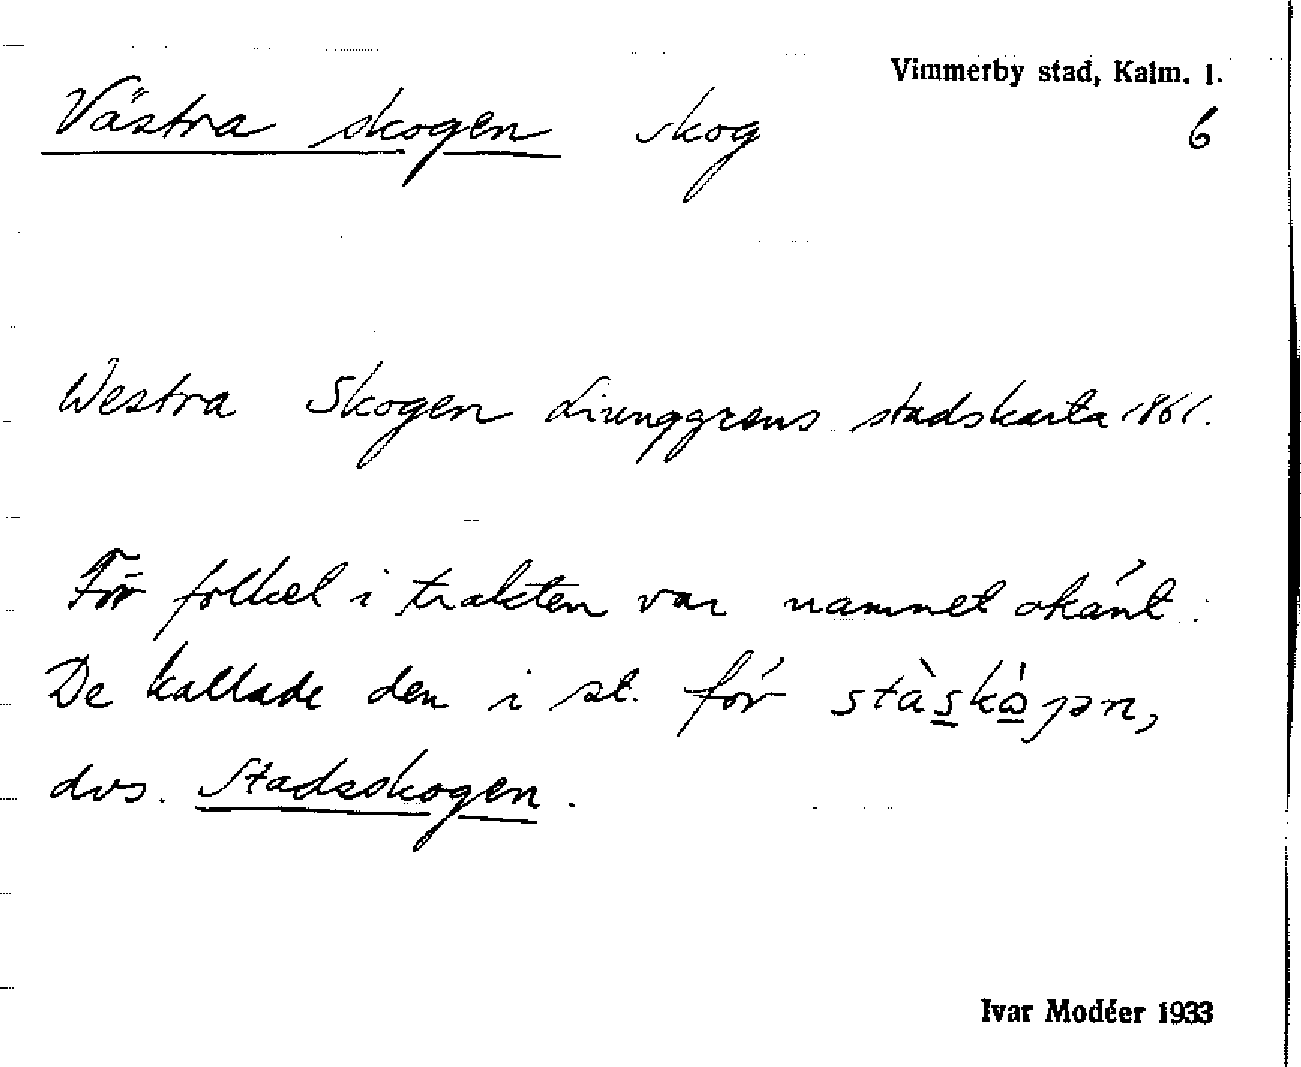 Vimmerby stad, Kalm. l.
Västra skogen skog 6
Westra Skogen Liunggrens stadskarta 1861.
För folket i trakten var namnet okänt.
De kallade den i st. för
dvs. Stadsskogen.
Ivar Modéer 1933